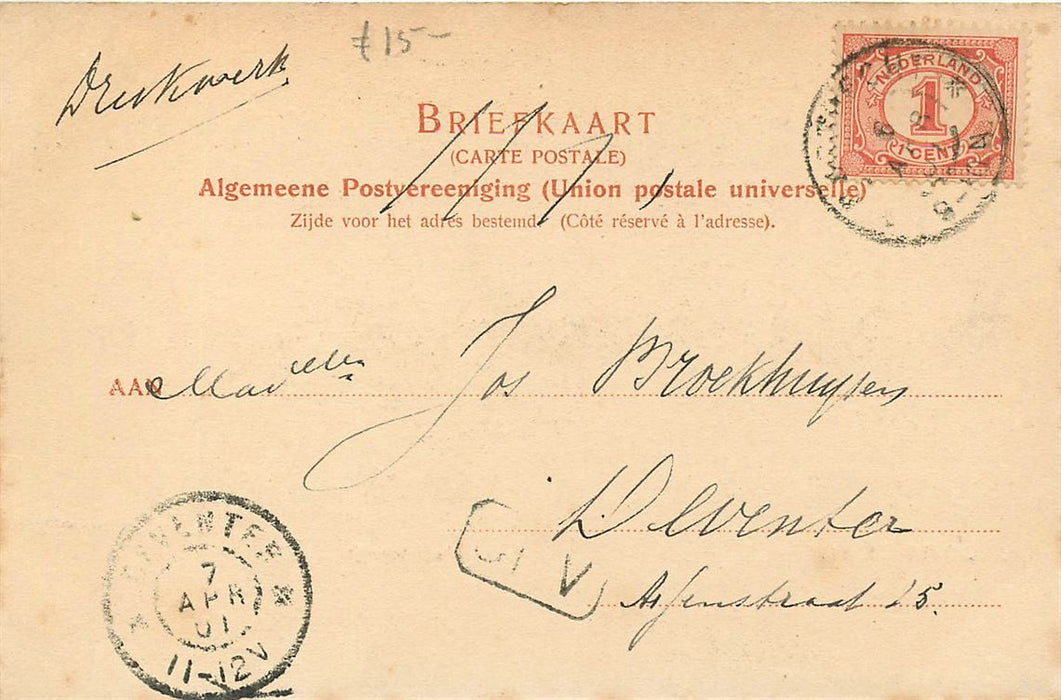 ƒ 15-
Drukwerk
NEDERLAND
1
1 CENT
BRIEFKAART
(CARTE POSTALE)
Algemeene Postvereeniging (Union postale universelle)
Zijde voor het adres bestemd. (Côté réservé à l'adresse).
AAN Madelle Jos Broekhuysen
Deventer
15.
DEVENTER
7
APR
01
11-12V
V